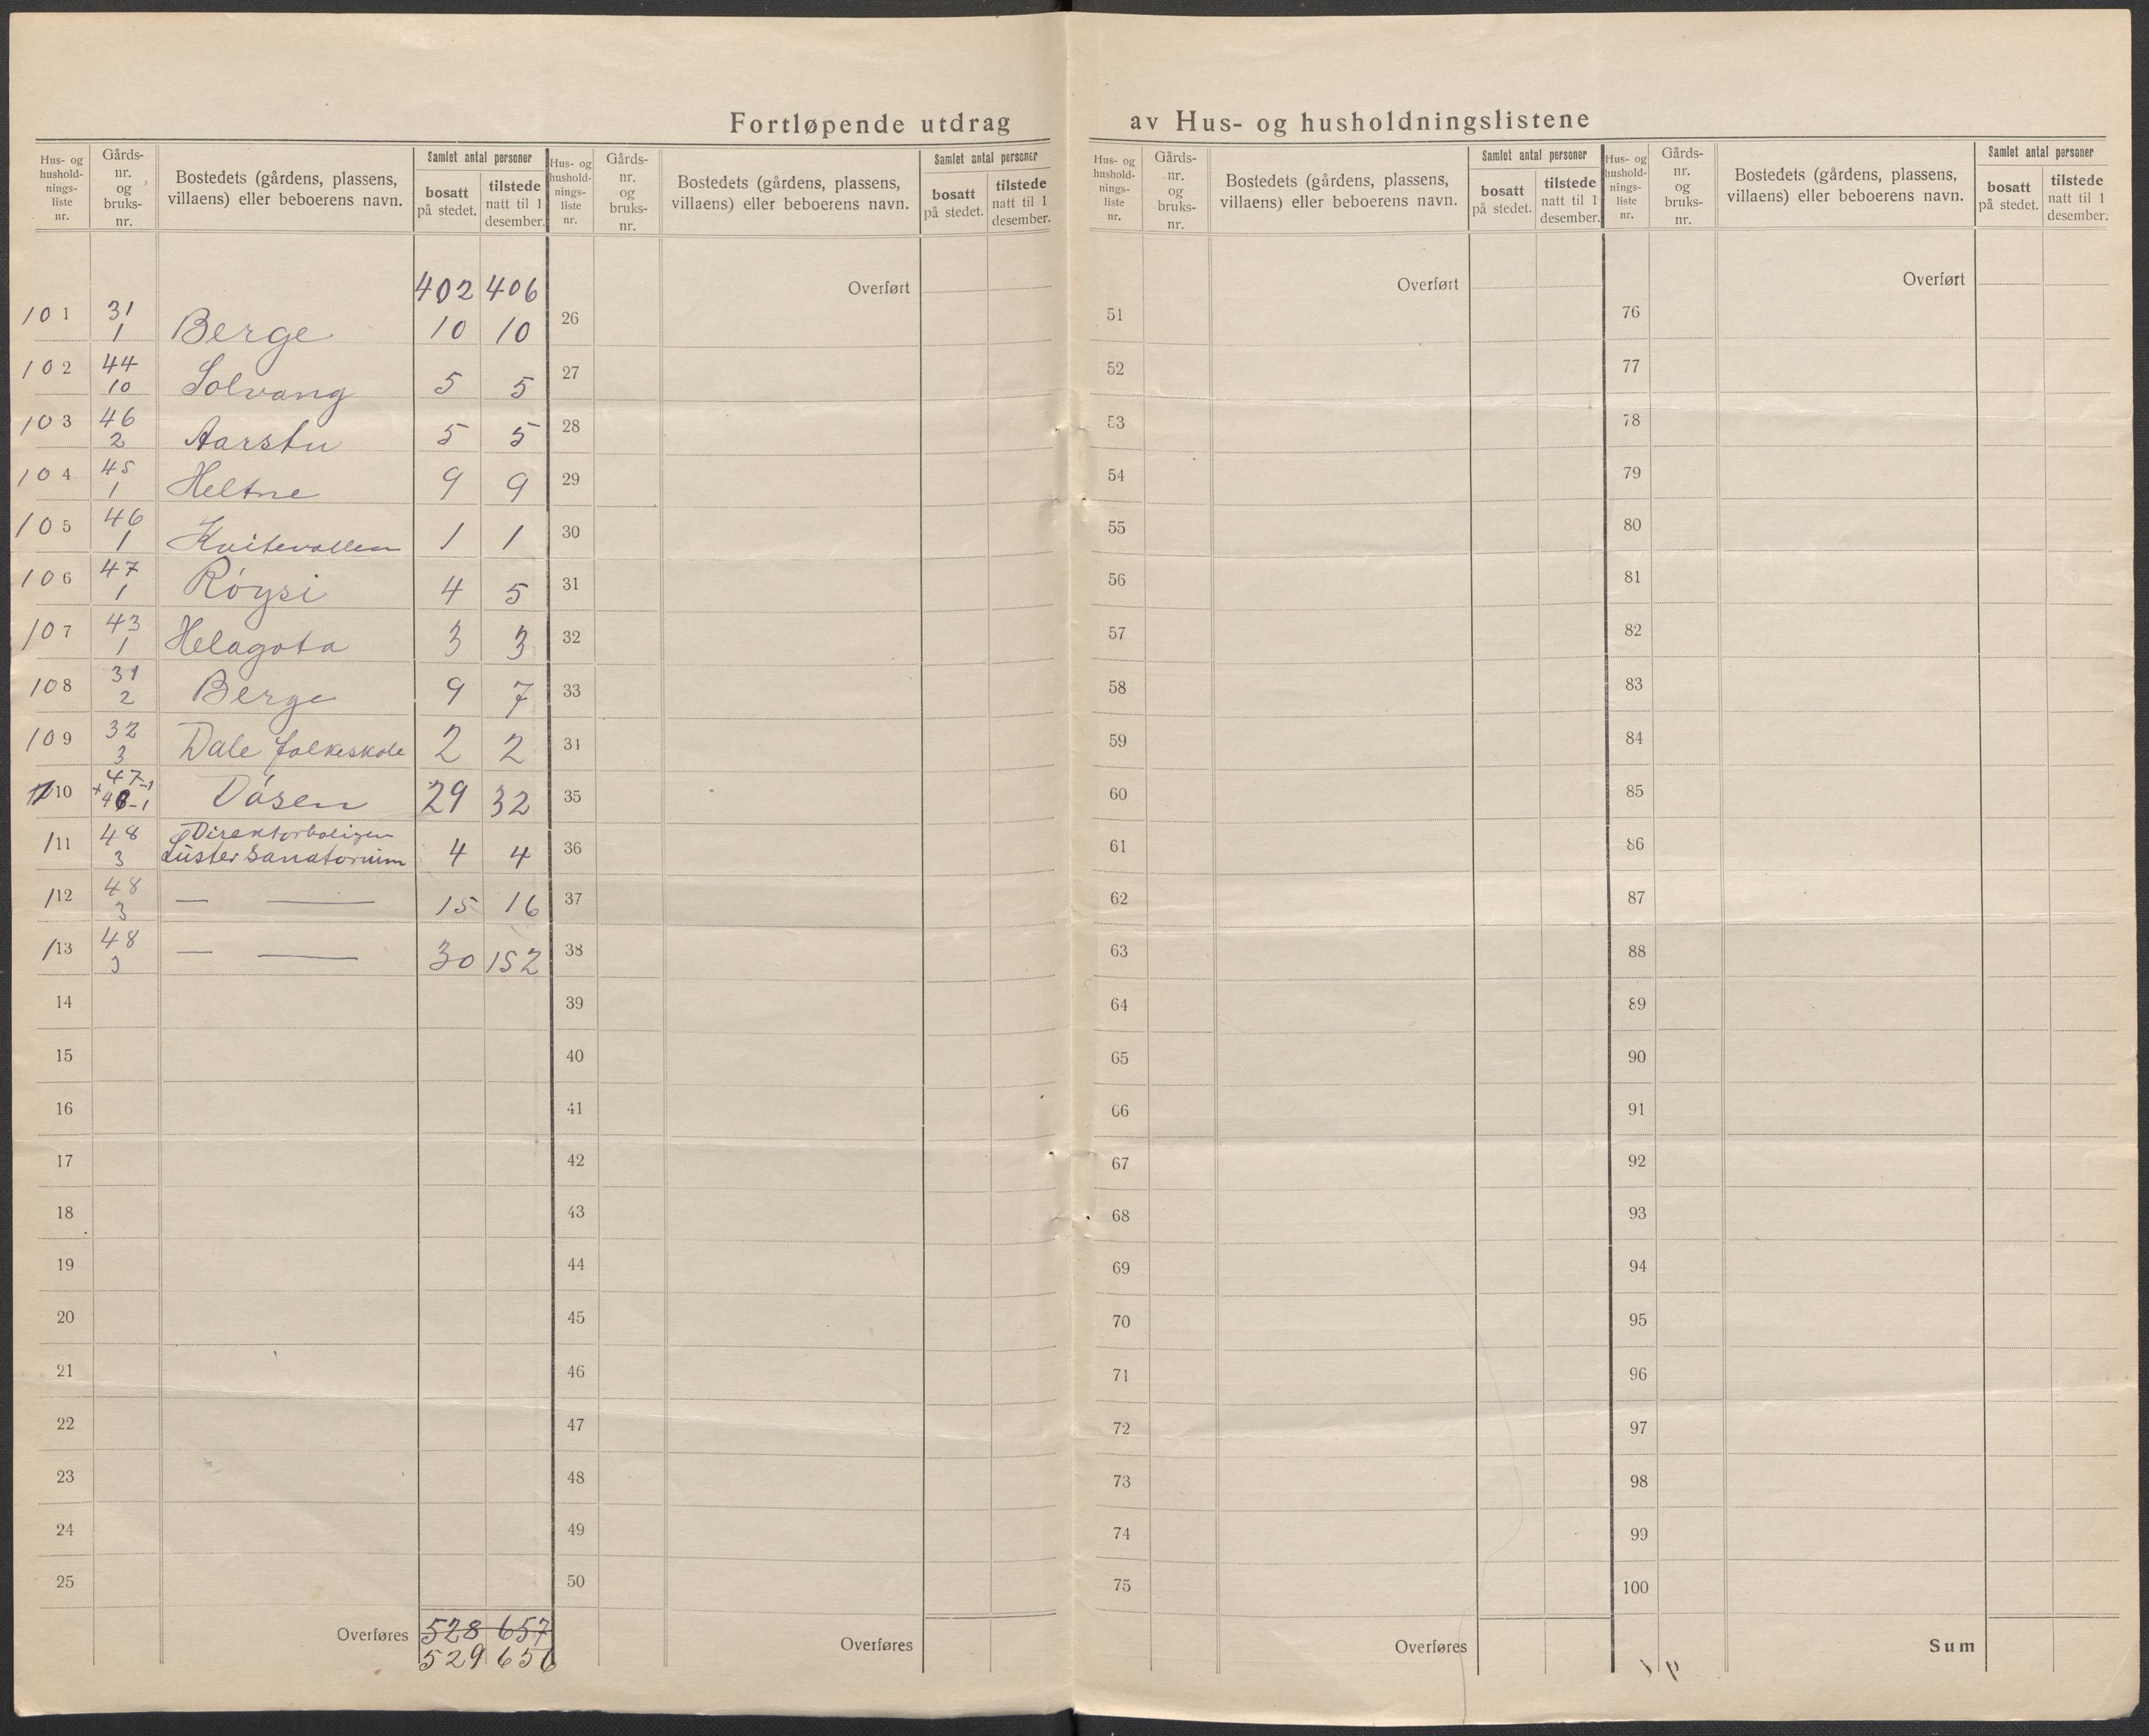 Fortløpende utdrag av Hus- og husholdningslistene
Hus- og
hushold-
nings-
liste
nr.
Gårds-
nr.
og
bruks-
nr.
Bostedets (gårdens, plassens,
villaens) eller beboerens navn.
Samlet antal personer
bosatt
på stedet.
tilstede
natt til 1
desember.
402 406
101 31 1 Berge 10 10
102 44 10 Solvang 5 5
103 46 2 Aarstu 5 5
104 45 1 Heltne 9 9
105 46 1 Kvitevollen 1 1
106 47 1 Röysi 4 5
107 43 1 Helagota 3 3
108 31 2 Berge 9 7
109 32 3 Dale folkeskole 2 2
110 47-1 + 48-1 Døsen 29 32
111 48 3 Direktørboligen
Luster Sanatorium 4 4
112 48 3 — — 15 16
113 48 3 — — 30 152
14
15
16
17
18
19
20
21
22
23
24
25
Overføres 528 657
529 656
Hus- og
hushold-
nings-
liste
nr.
Gårds-
nr.
og
bruks-
nr.
Bostedets (gårdens, plassens,
villaens) eller beboerens navn.
Samlet antal personer
bosatt
på stedet.
tilstede
natt til 1
desember.
Overført
26
27
28
29
30
31
32
33
34
35
36
37
38
39
40
41
42
43
44
45
46
47
48
49
50
Overføres
Hus- og
hushold-
nings-
liste
nr.
Gårds-
nr.
og
bruks-
nr.
Bostedets (gårdens, plassens,
villaens) eller beboerens navn.
Samlet antal personer
bosatt
på stedet.
tilstede
natt til 1
desember.
Overført
51
52
53
54
55
56
57
58
59
60
61
62
63
64
65
66
67
68
69
70
71
72
73
74
75
Overføres
Hus- og
hushold-
nings-
liste
nr.
Gårds-
nr.
og
bruks-
nr.
Bostedets (gårdens, plassens,
villaens) eller beboerens navn.
Samlet antal personer
bosatt
på stedet.
tilstede
natt til 1
desember.
Overført
76
77
78
79
80
81
82
83
84
85
86
87
88
89
90
91
92
93
94
95
96
97
98
99
100
Sum